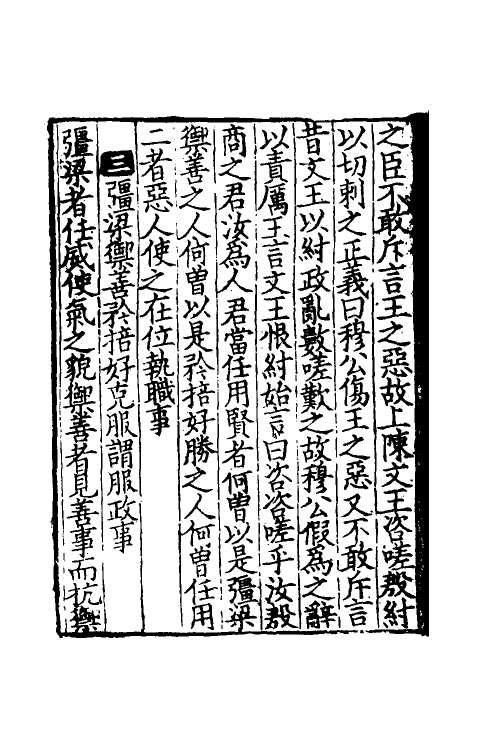 之臣不敢斥言王之惡故上陳文王咨嗟殷紂
以切刺之正義曰穆公傷王之惡又不敢斥言
昔文王以紂政亂數嗟歎之故穆公假為之辭
以責厲王言文王恨紂始言曰咨咨嗟乎汝殷
商之君汝為人君當任用賢者何曽以是彊梁
禦善之人何曽以是矜掊好勝之人何曽任用
二者惡人使之在位執職事
三彊梁禦善矜掊好克服謂服政事
彊梁者任威使氣之貌禦善者見善事而抗禦